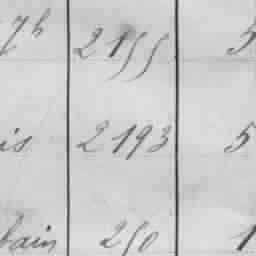 2155 5
is 2193 5
bain 250 1